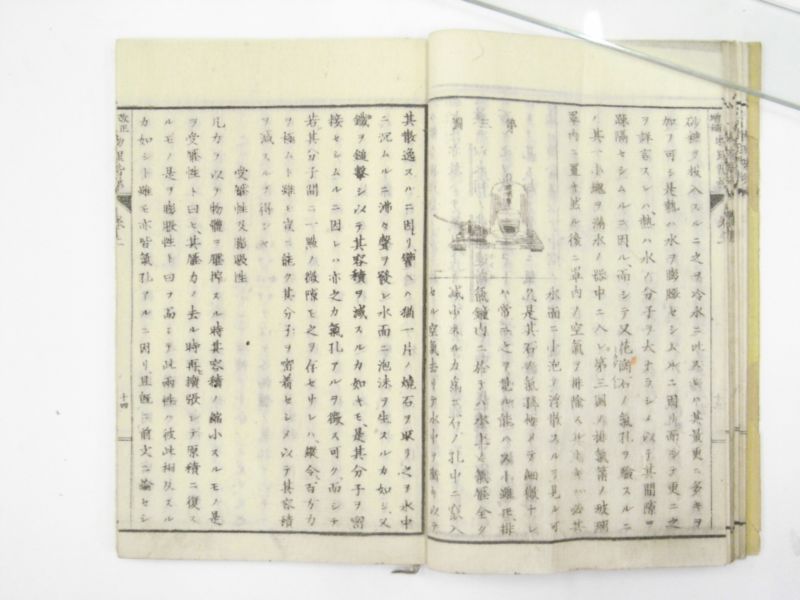 砂糖ヲ投入スルニ之ヲ冷水ニ比スレハ其量更ニ多キヲ
加フ可シ是熱ハ水ヲ膨脹セシムルニ因リ而シテ更ニ之
ヲ詳言スレハ熱ハ水ノ分子ヲ大ナラシメ以テ其間隙ヲ
疎隔セシムルニ因ル而シテ又花崗石ノ氣孔ヲ驗スルニ
ハ其一小塊ヲ滿水ノ器中ニ入レ第三圖ノ排氣篇ノ玻璃
罩內ニ置キ然ル後ニ罩內ノ空氣ヲ排除スルキハ必其
水面ニ小泡ノ浮散スルヲ見ル可
シ是其石ノ氣孔極メテ細微ナレ
ハ常ニ之ヲ見ル能ハス小雖𪜈排
氣鐘內ニ於テハ水上ノ氣壓全ク
減少スルカ為ニ石ノ孔中ニ竄入
セル空氣去リテ水中ヲ騰リ以テ
第三圖
其散逸スルニ因リ譬ヘハ猶一片ノ燒石ヲ取リ之ヲ水中
ニ沉ムルニ沸々聲ヲ發シ水面ニ泡沫ヲ生スルカ如シ又
鐵ヲ鎚擊シ以テ其容積ヲ減スルカ如キモ是其分子ヲ密
接セシムルニ因レハ亦之カ氣孔アルヲ徵ス可ク而シテ
若其分子間ニ一點ノ微隙モ之ヲ存セサレハ縱令百方力
ヲ極ムト雖モ寂ニ能ク其分子ヲ密着セシメ以テ其容積
ヲ減スルヲ得ンヤ
受搾性及膨脹性
凡力ヲ以テ物體ヲ壓搾スル時其容積ノ縮小スルモノ是
ヲ受搾性ト曰ヒ其壓力ノ去ル時再擴張シテ原積ニ復ス
ルモノ是ヲ膨脹性ト曰フ而シテ此兩性ハ彼此相反スル
カ如シト雖モ亦皆氣孔アルニ因リ且既ニ前文ニ論セシ
改正
十四